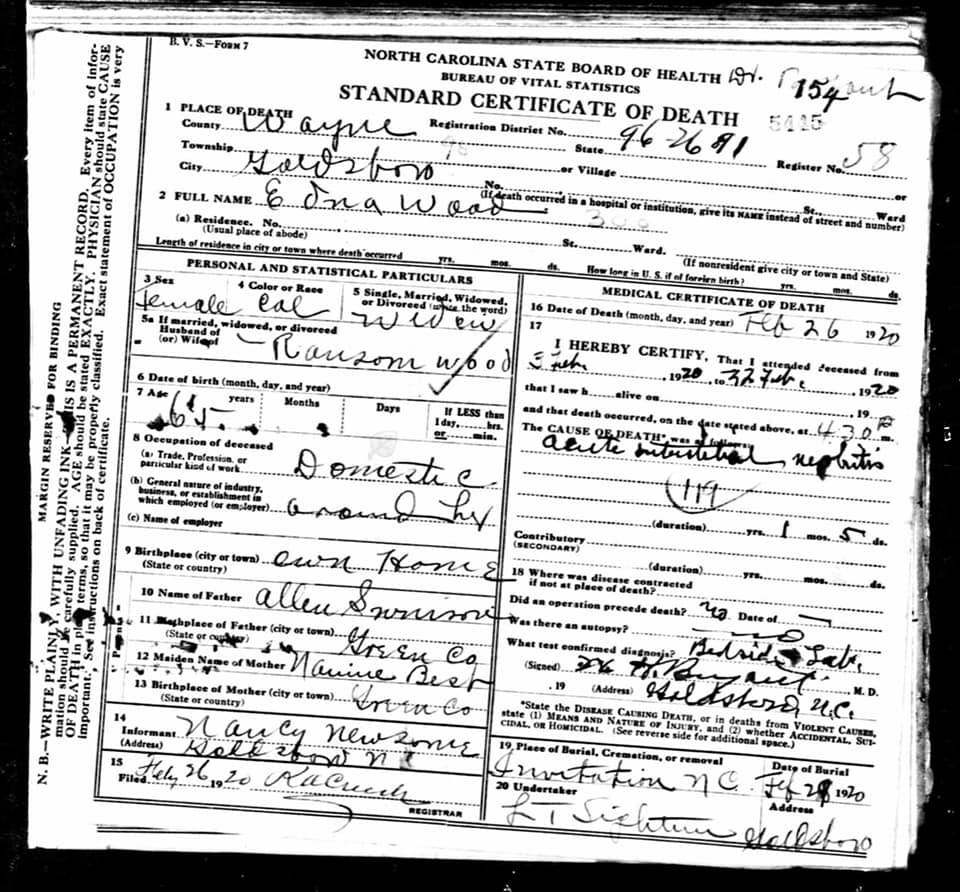 B. V. S.—FORM 7
NORTH CAROLINA STATE BOARD OF HEALTH Dr.
154
BUREAU OF VITAL STATISTICS
STANDARD CERTIFICATE OF DEATH
5415
1 PLACE OF DEATH
County Wayne Registration District No. 96-2691 Register No. 58
Township State
City Goldsboro or Village or
No. St., Ward
(If death occurred in a hospital or institution, give its NAME instead of street and number)
2 FULL NAME Edna Wood
(a) Residence. No. St. Ward.
(Usual place of abode) (If nonresident give city or town and State)
Length of residence in city or town where death occurred yrs. mos. ds. How long in U. S. if of foreign birth? yrs. mos. ds.
PERSONAL AND STATISTICAL PARTICULARS
3 Sex 4 Color or Race 5 Single, Married, Widowed, or Divorced (write the word)
female Col Widow
5a If married, widowed, or divorced
Husband of
(or) Wife of Ransom Wood
6 Date of birth (month, day, and year)
7 Age years Months Days If LESS than
1 day, hrs.
or min.
65
8 Occupation of deceased
(a) Trade, Profession, or
particular kind of work Domestic
(b) General nature of industry,
business, or establishment in
which employed (or employer) around her
(c) Name of employer
9 Birthplace (city or town) own Home
(State or country)
10 Name of Father Allen
11 Birthplace of Father (city or town)
(State or country) Green Co
12 Maiden Name of Mother Best
13 Birthplace of Mother (city or town)
(State or country) Green Co
14
Informant Nancy Newsome
(Address) Goldsboro N C
15
Filed Feby 26 1920
REGISTRAR
MEDICAL CERTIFICATE OF DEATH
16 Date of Death (month, day, and year) Feb 26 1920
17
I HEREBY CERTIFY, That I attended deceased from
3 Feb. 1920, to 22 Feb., 1920
that I saw h alive on , 19
and that death occurred, on the date stated above, at 4 30 P m.
The CAUSE OF DEATH* was as follows:
acute interstitial nephritis
(119)
(duration) yrs. 1 mos. 5 ds.
Contributory
(SECONDARY)
(duration) yrs. mos. ds.
18 Where was disease contracted
if not at place of death?
Did an operation precede death? no Date of
Was there an autopsy? no
What test confirmed diagnosis? Bedside + Lab.
(Signed) M. D.
, 19 (Address) Goldsboro N.C.
*State the DISEASE CAUSING DEATH, or in deaths from VIOLENT CAUSES,
state (1) MEANS AND NATURE OF INJURY, and (2) whether ACCIDENTAL, SUI-
CIDAL, OR HOMICIDAL. (See reverse side for additional space.)
19. Place of Burial, Cremation, or removal Date of Burial
Invitation N C. Feb 28 1920
20 Undertaker Address
Goldsboro
MARGIN RESERVED FOR BINDING
N. B.—WRITE PLAINLY, WITH UNFADING INK—THIS IS A PERMANENT RECORD. Every item of infor-
mation should be carefully supplied. AGE should be stated EXACTLY. PHYSICIAN should state CAUSE
OF DEATH in plain terms, so that it may be properly classified. Exact statement of OCCUPATION is very
important. See instructions on back of certificate.